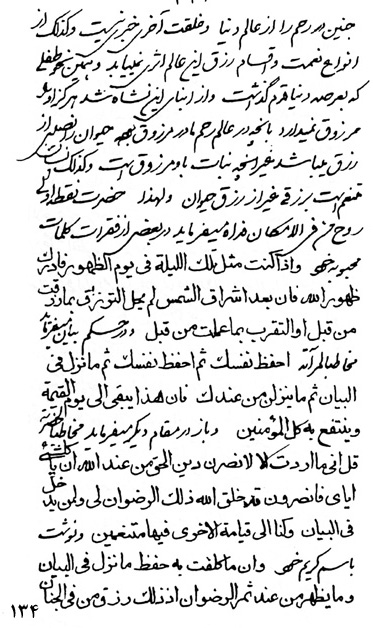 جنین در رحم را از عالم دنیا و خلقت آخری خبری نیست و کذلک از
انواع نعمت و اقسام رزق این عالم اثری نمییابد و همین نحو طفلی
که بعرصه دنیا قدم گذاشت و از ابنای این نشأه شد هرگز او
مرزوق نمیدارد بآنچه در عالم رحم مادر مرزوق بود حیوان را تفصیلی از
رزق میباشد غیر آنچه نبات باو مرزوق است و کذلک انسان
متنعم است برزقی غیر از رزق حیوان و لهذا حضرت نقطه اولی
روح من فی الامکان فداه میفرماید در بعضی از فقرات کلمات
محبوبه خود و اذا کنت مثل تلک اللیلة فی یوم الظهور فادرک
ظهور الله فان بعد اشراق الشمس لم یحل التورزق بما رزقت
من قبل او التقرب بما عملت من قبل و در حکم بیان میفرماید
مخاطبا لمرآته احفظ نفسک ثم احفظ نفسک ثم ما نزل فی
البیان ثم ما ینزل من عندک فان هذا یبقی الی یوم القیمة
و ینتفع به کل المؤمنین و باز در مقام دیگر میفرماید مخاطبا
قل انی ما اردت کلا لانصرن دین الحی من عند الله ان یأتی
ایای فانصرون قد خلق الله ذلک الرضوان لی و لمن یدخل
فی البیان و کنا الی قیامة الاخری فیها متنعمین و نوشت
باسم کریم خود و ان ما کلفت به حفظ ما نزل فی البیان
و ما یظهر من عند ثمر الرضوان اذ ذلک رزق من فی الجنان
۱۳۴